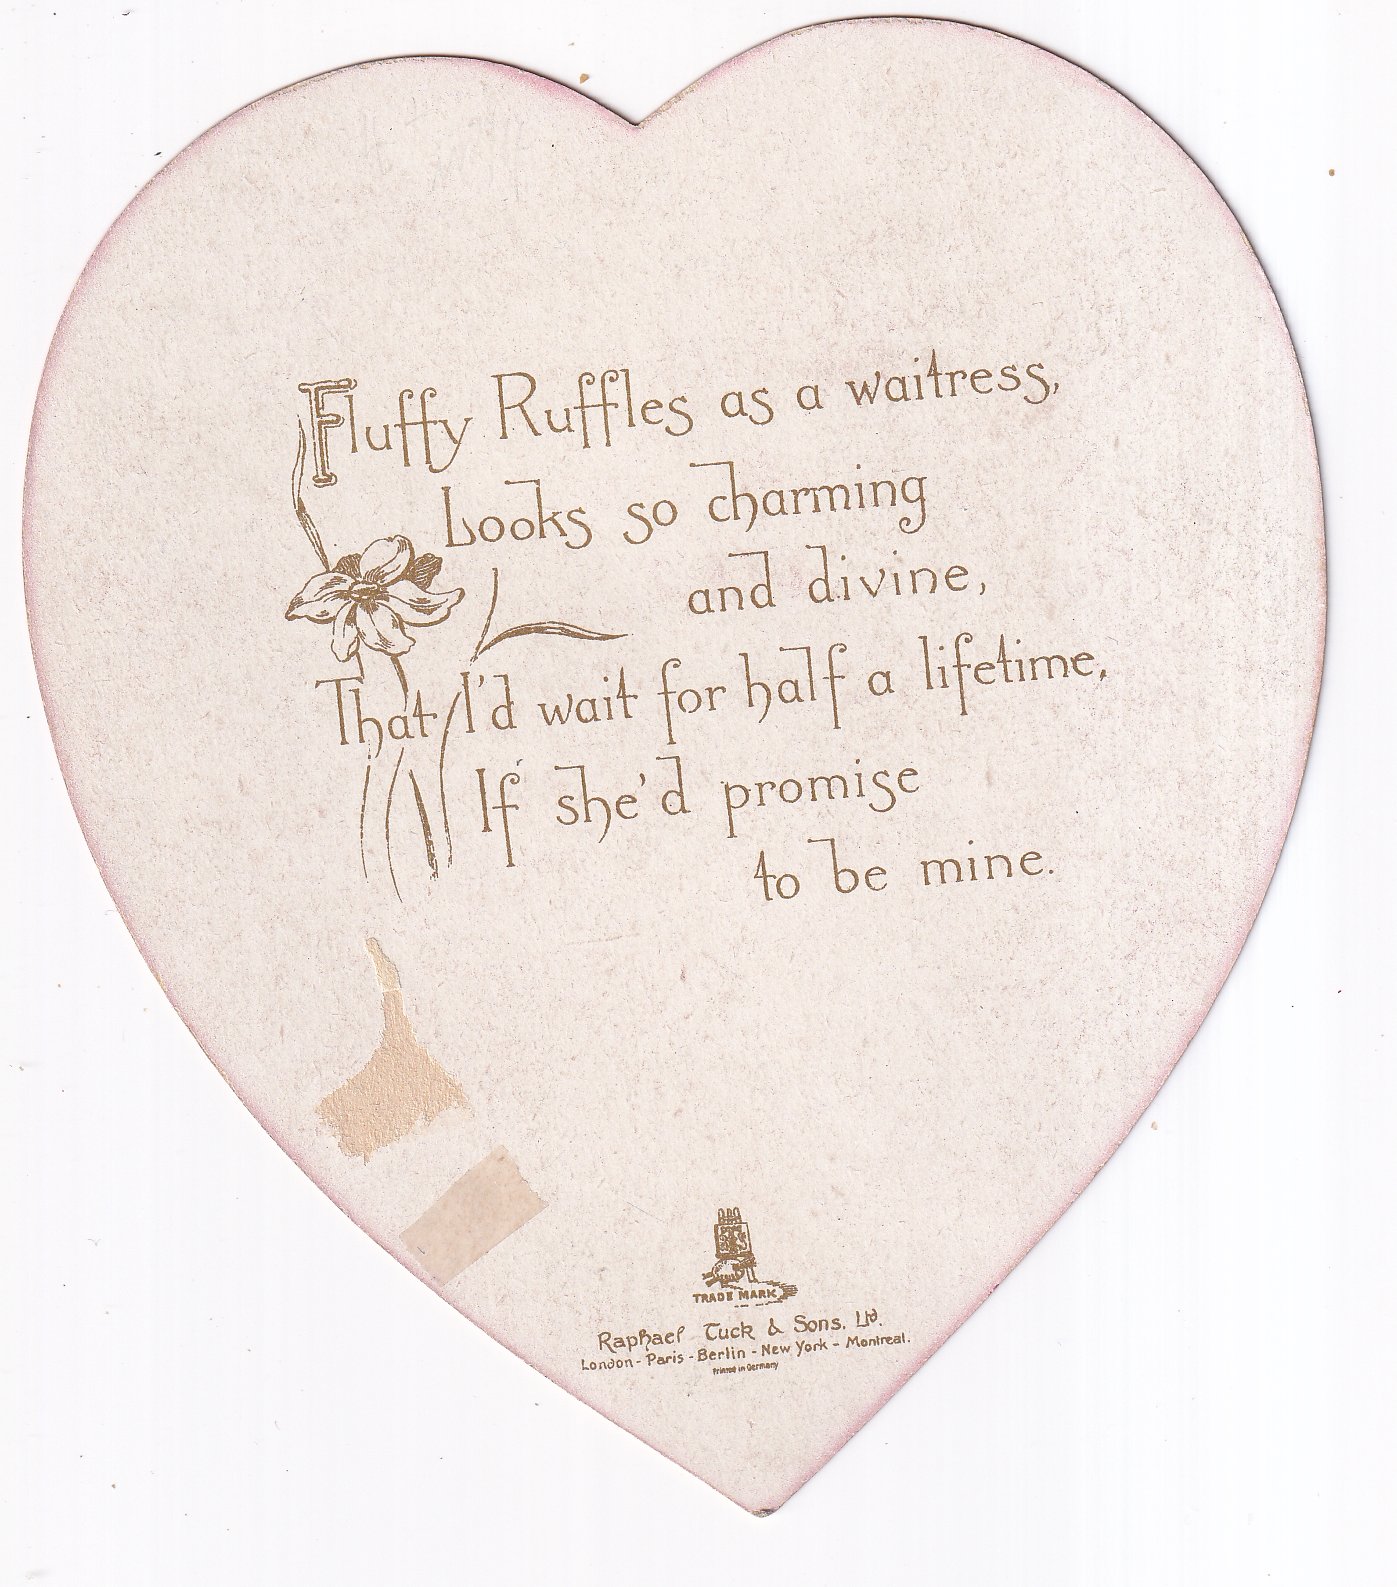 Fluffy Ruffles as a waitress,
Looks so charming
and divine,
That I'd wait for half a lifetime,
If she'd promise
to be mine.
TRADE MARK
Raphael Tuck & Sons, Ltd.
London - Paris - Berlin - New York - Montreal.
Printed in Germany